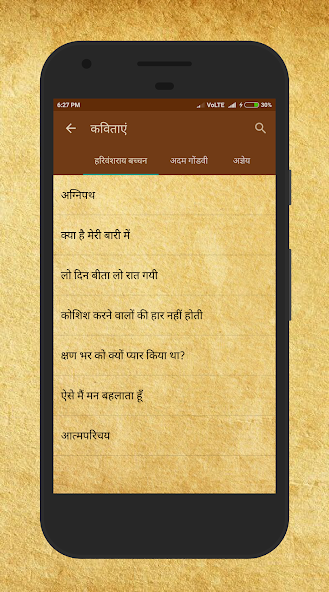 6:27 PM VoLTE 30%
कविताएं
हरिवंशराय बच्चन अदम गोंडवी अज्ञेय
अग्निपथ
क्या है मेरी बारी में
लो दिन बीता लो रात गयी
कोशिश करने वालों की हार नहीं होती
क्षण भर को क्यों प्यार किया था?
ऐसे मैं मन बहलाता हूँ
आत्मपरिचय